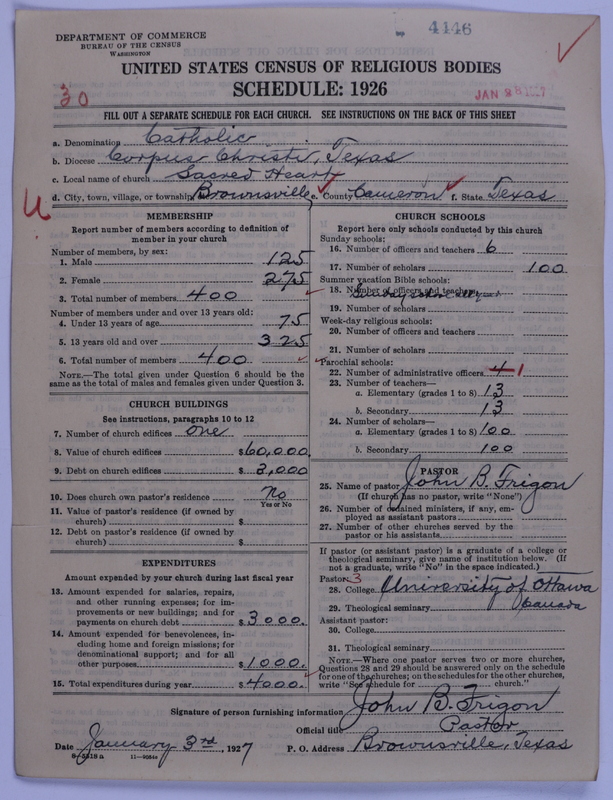 4446
DEPARTMENT OF COMMERCE
BUREAU OF THE CENSUS
WASHINGTON
UNITED STATES CENSUS OF RELIGIOUS BODIES
SCHEDULE: 1926
30
JAN 8
FILL OUT A SEPARATE SCHEDULE FOR EACH CHURCH. SEE INSTRUCTIONS ON THE BACK OF THIS SHEET
a. Denomination Catholic
b. Diocese Corpus Christi, Texas
c. Local name of church Sacred Heart
d. City, town, village, or township Brownsville e. County Cameron f. State Texas
MEMBERSHIP
Report number of members according to definition of
member in your church
Number of members, by sex:
1. Male 125
2. Female 275
3. Total number of members 400
Number of members under and over 13 years old:
4. Under 13 years of age 75
5. 13 years old and over 325
6. Total number of members 400
NOTE.—The total given under Question 6 should be the
same as the total of males and females given under Question 3.
CHURCH BUILDINGS
See instructions, paragraphs 10 to 12
7. Number of church edifices one
8. Value of church edifices $60,000.
9. Debt on church edifices $2,000
10. Does church own pastor's residence No
Yes or No
11. Value of pastor's residence (if owned by
church) $
12. Debt on pastor's residence (if owned by
church) $
EXPENDITURES
Amount expended by your church during last fiscal year
13. Amount expended for salaries, repairs,
and other running expenses; for im-
provements or new buildings; and for
payments on church debt $3000.
14. Amount expended for benevolences, in-
cluding home and foreign missions; for
denominational support; and for all
other purposes $1000.
15. Total expenditures during year $4000.
CHURCH SCHOOLS
Report here only schools conducted by this church
Sunday schools:
16. Number of officers and teachers 6
17. Number of scholars 100
Summer vacation Bible schools:
18. Number of officers and teachers
19. Number of scholars
Week-day religious schools:
20. Number of officers and teachers
21. Number of scholars
Parochial schools:
22. Number of administrative officers 4 1
23. Number of teachers—
a. Elementary (grades 1 to 8) 13
b. Secondary 13
24. Number of scholars—
a. Elementary (grades 1 to 8) 100
b. Secondary 100
PASTOR
25. Name of pastor John B. Frigon
(If church has no pastor, write "None")
26. Number of ordained ministers, if any, em-
ployed as assistant pastors
27. Number of other churches served by the
pastor or his assistants
If pastor (or assistant pastor) is a graduate of a college or
theological seminary, give name of institution below. (If
not a graduate, write "No" in the space indicated.)
Pastor: 3
28. College University of Ottawa
29. Theological seminary Canada
Assistant pastor:
30. College
31. Theological seminary
NOTE.—Where one pastor serves two or more churches,
Questions 28 and 29 should be answered only on the schedule
for one of the churches; on the schedules for the other churches,
write "See schedule for church."
Signature of person furnishing information John B. Frigon
Official title Pastor
Date January 3rd, 1927 P. O. Address Brownsville, Texas